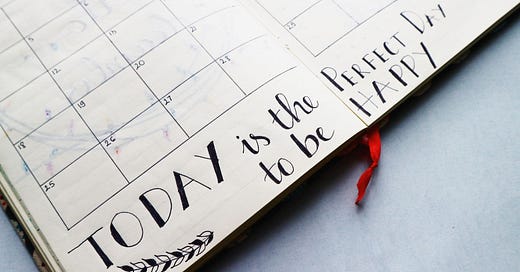 5
12
18 19 20
25 26 27
TODAY is the PERFECT DAY
to be HAPPY